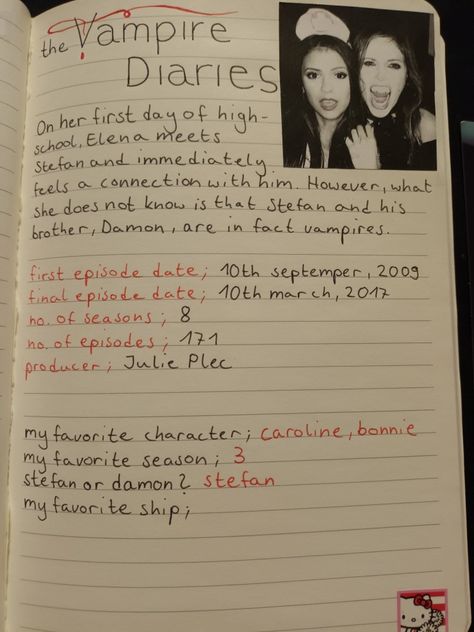 the Vampire
Diaries
On her first day of high-
school, Elena meets
Stefan and immediately
feels a connection with him. However, what
she does not know is that Stefan and his
brother, Damon, are in fact vampires.
first episode date; 10th septemper, 2009
final episode date; 10th march, 2017
no. of seasons; 8
no. of episodes; 171
producer; Julie Plec
my favorite character; caroline, bonnie
my favorite season; 3
stefan or damon? stefan
my favorite ship;